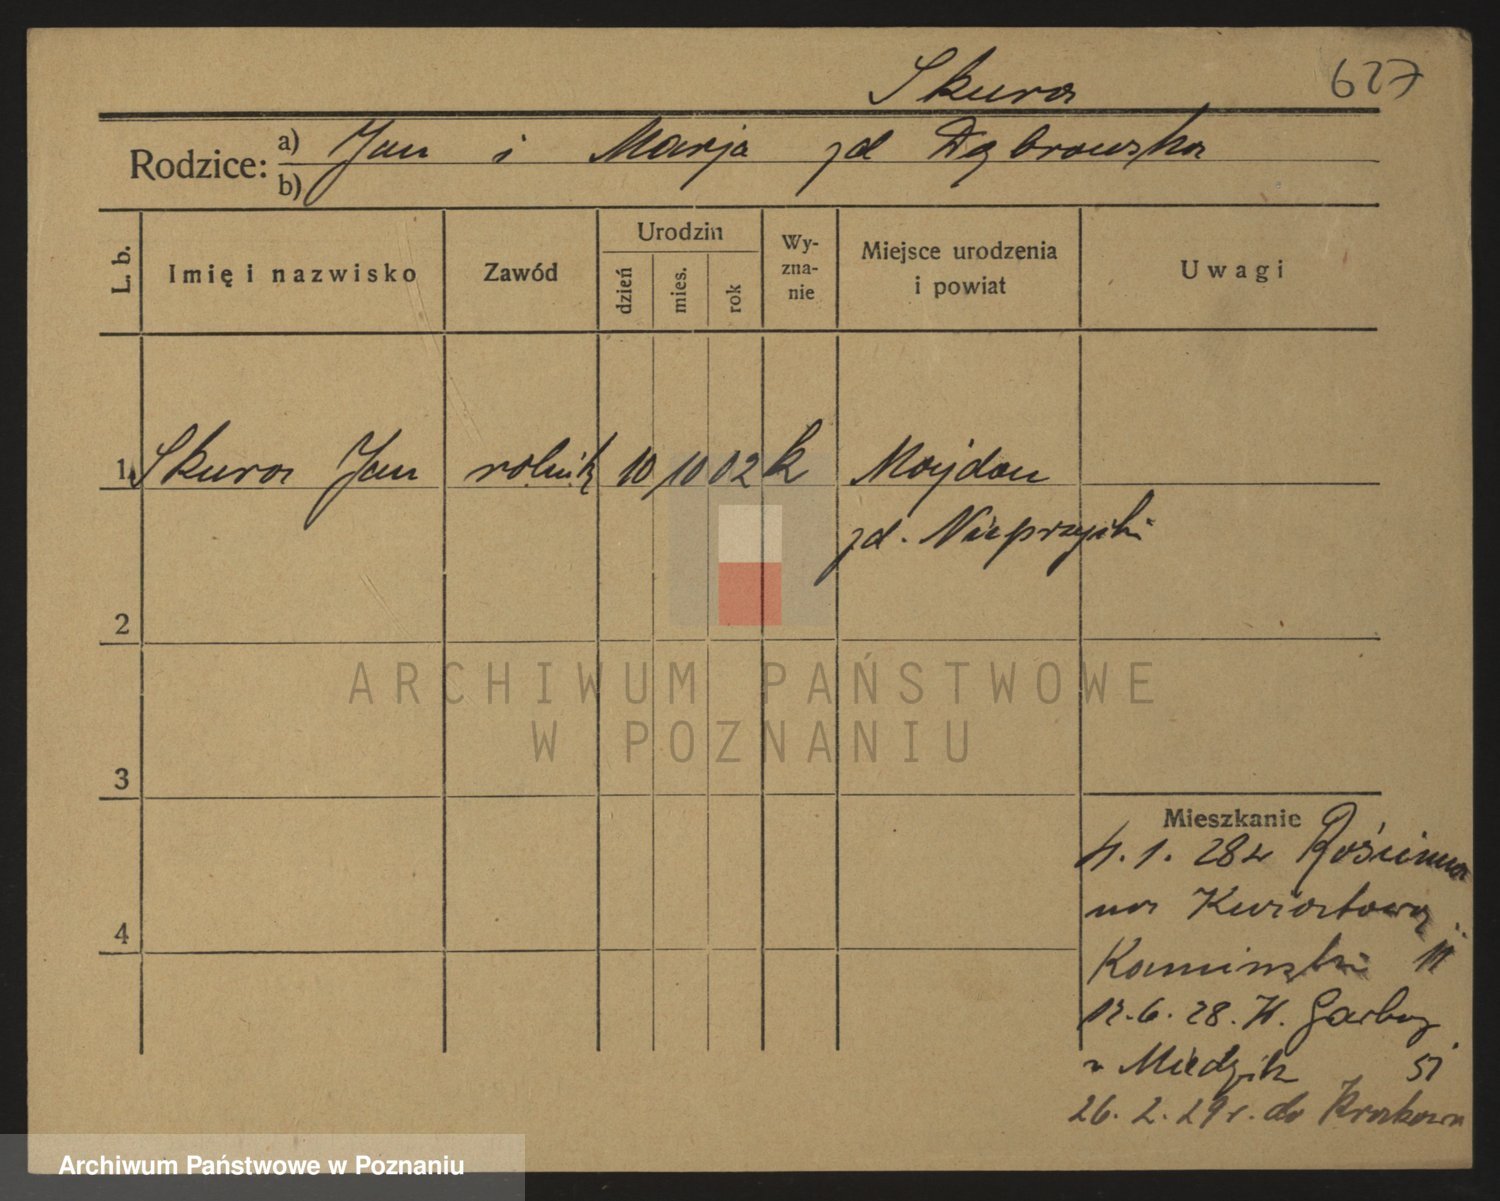 627
Skura
Rodzice: a) Jan i Marja zd Dąbrowska
b)
L. b.
Imię i nazwisko
Zawód
Urodzin
dzień
mies.
rok
Wy-
zna-
nie
Miejsce urodzenia
i powiat
Uwagi
1 Skura Jan rolnik 10 10 02 k Majdan
pd.
2
3
4
ARCHIWUM PAŃSTWOWE
W POZNANIU
Mieszkanie
4. 1. 28
na Kwiatową
Kamiński 11
12. 6. 28. W. Garbary
51
26. 2. 29 r. do Krakowa
Archiwum Państwowe w Poznaniu